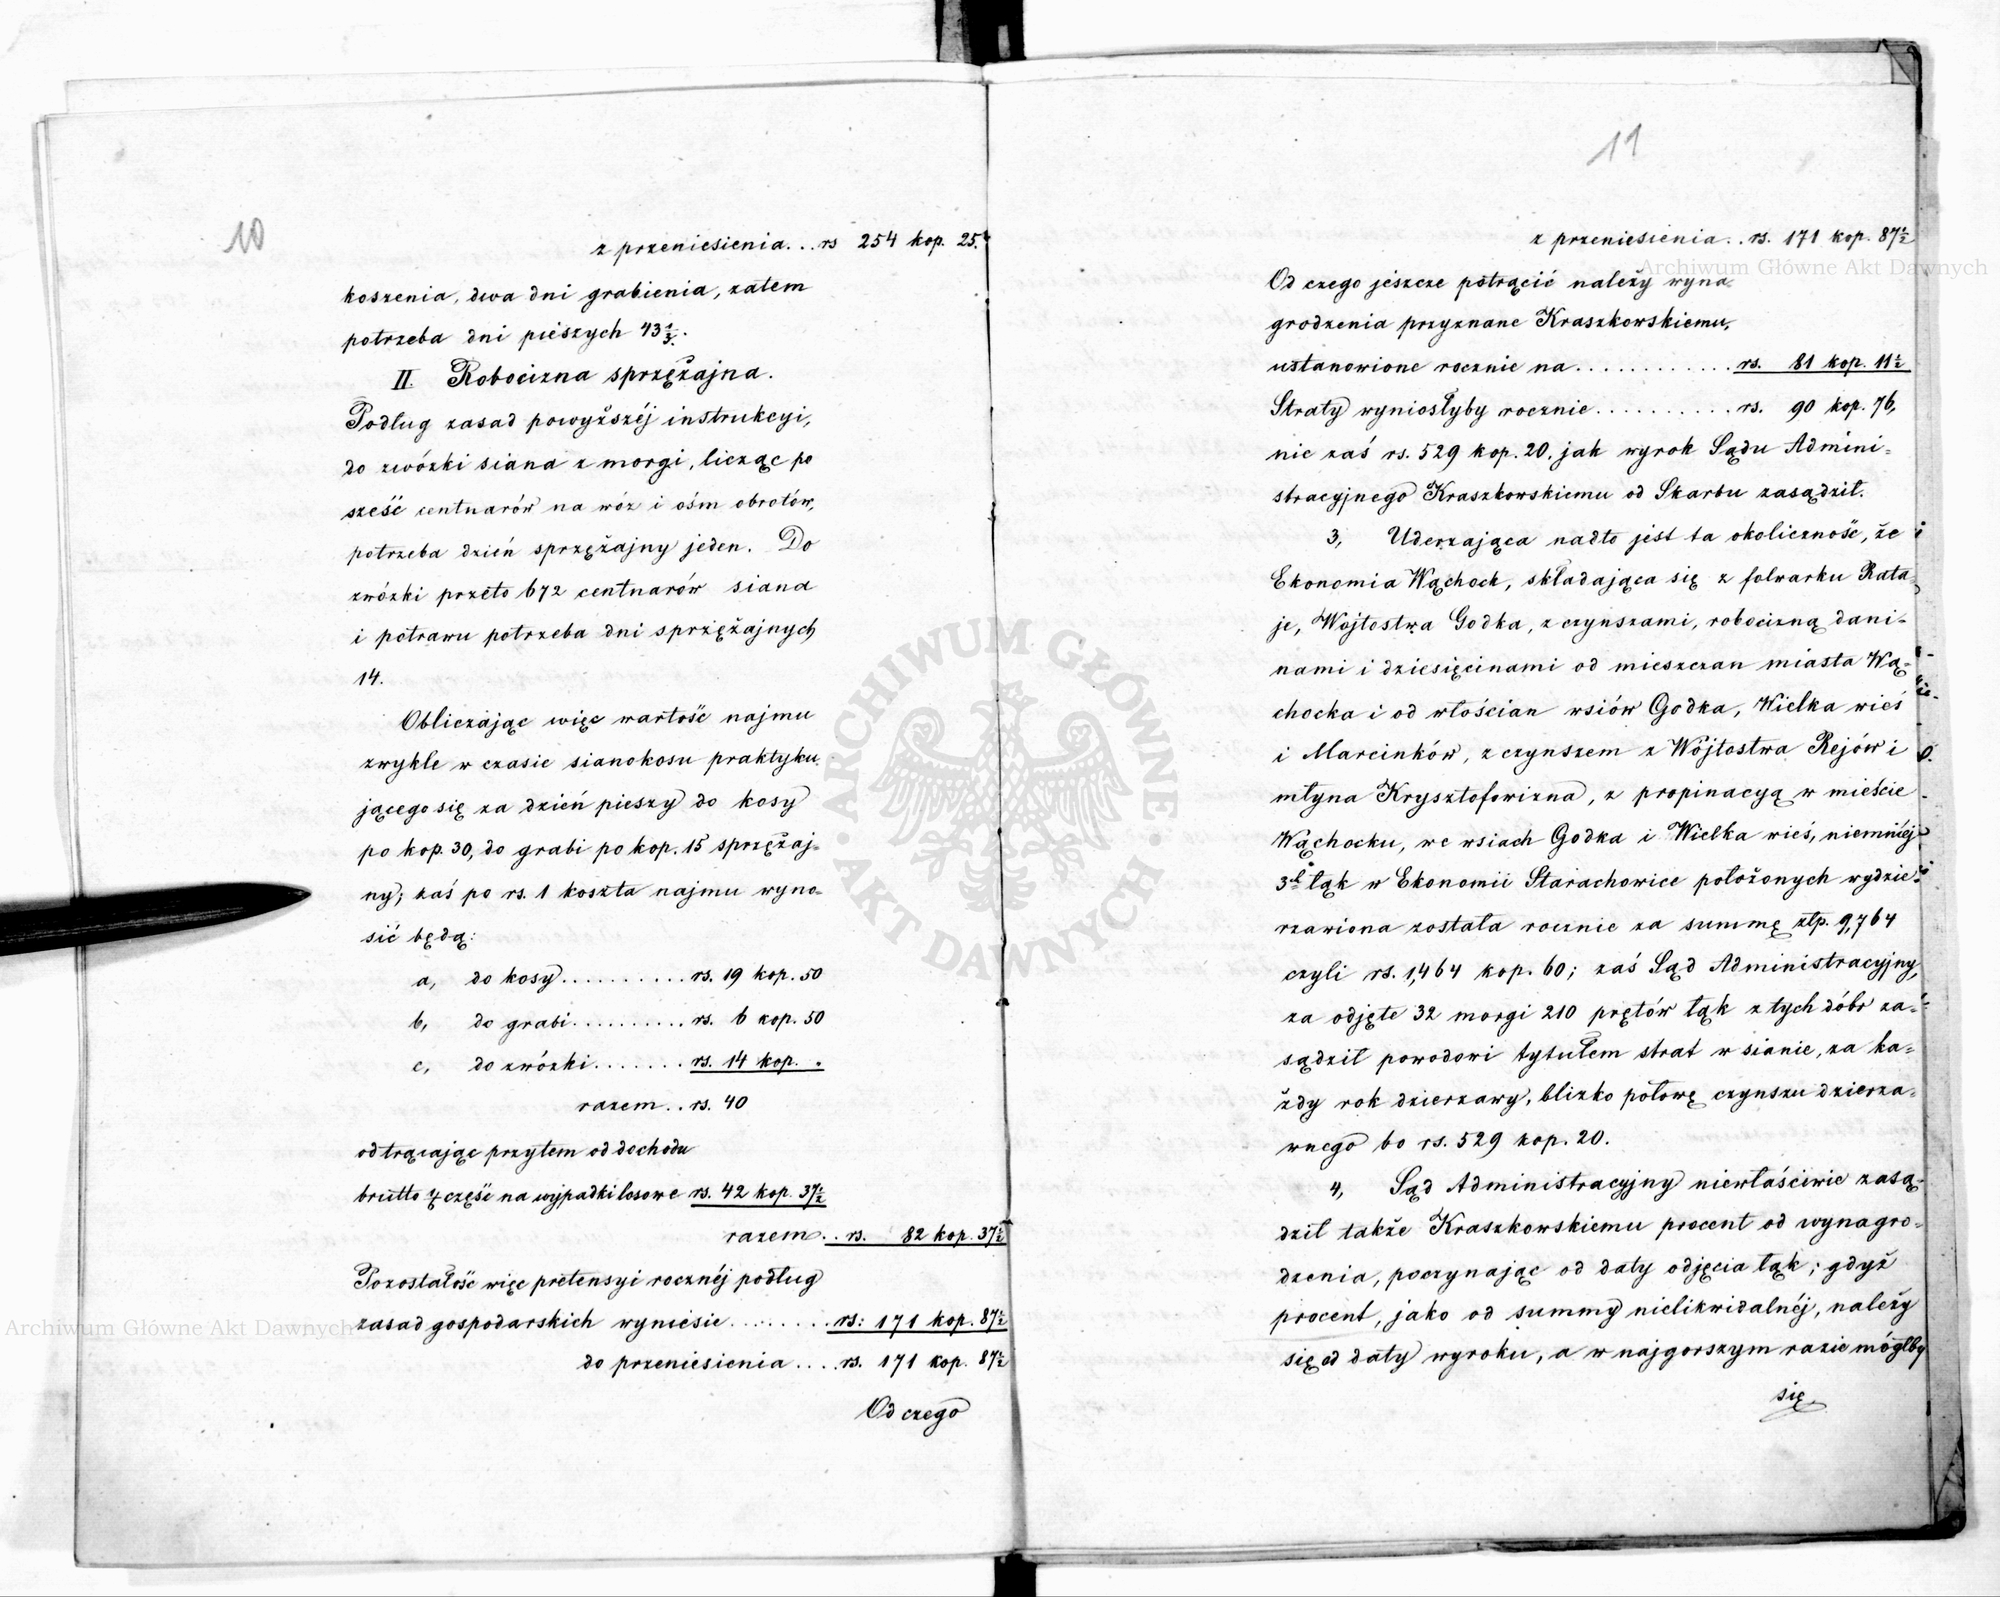 10
z przeniesienia... rs 254 kop. 25.
koszenia, dwa dni grabienia, zatem
potrzeba dni pieszych 43 1/3.
II. Robocizna sprzężajna.
Podług zasad powyższéj instrukcyi,
do zwózki siana z morgi, licząc po
sześć centnarów na wóz i ośm obrotów,
potrzeba dzień sprzężajny jeden. Do
zwózki przeto 672 centnarów siana
i potrawu potrzeba dni sprzężajnych
14.
Obliczając więc wartość najmu
zwykle w czasie sianokosu praktyku-
jącego się za dzień pieszy do kosy
po kop. 30, do grabi po kop. 15 sprzężaj-
ny; zaś po rs. 1 koszta najmu wyno-
sić będą:
a, do kosy.......... rs. 19 kop. 50
b, do grabi.......... rs. 6 kop. 50
c, do zwózki....... rs. 14 kop. .
razem.. rs. 40
odtrącając przytem od dochodu
brutto część na wypadki losowe rs. 42 kop. 37½
razem.. rs. 82 kop. 37½
Pozostałość więc pretensyi rocznéj podług
zasad gospodarskich wyniesie......... rs: 171 kop. 87½
do przeniesienia.... rs. 171 kop. 87½
Od czego
11
z przeniesienia.. rs. 171 kop. 87½
Od czego jeszcze potrącić należy wyna-
grodzenia przyznane Kraszkowskiemu,
ustanowione rocznie na............ rs. 81 kop. 11½
Straty wyniosłyby rocznie.......... rs. 90 kop. 76,
nie zaś rs. 529 kop. 20. jak wyrok Sądu Admini-
stracyjnego Kraszkowskiemu od Skarbu zasądził.
3, Uderzająca nadto jest ta okoliczność, że
Ekonomia Wąchock, składająca się z folwarku Rata-
je, Wojtostwa Godka, z czynszami, robocizną dani-
nami i dziesięcinami od mieszczan miasta Wą-
chocka i od włościan wsiów Godka, Wielka wieś
i Marcinków, z czynszem z Wójtostwa Rejów i
młyna Krysztofowizna, z propinacyą w mieście
Wąchocku, we wsiach Godka i Wielka wieś, niemniéj
3ch łąk w Ekonomii Starachowice położonych wydzie-
rzawiona została rocznie za summę złp. 9,764
czyli rs. 1,464 kop. 60; zaś Sąd Administracyjny,
za odjęte 32 morgi 210 prętów łąk z tych dóbr za-
sądził powodowi tytułem strat w sianie, za ka-
żdy rok dzierzawy, blizko połowę czynszu dzierza-
wnego bo rs. 529 kop. 20.
4, Sąd Administracyjny niewłaściwie zasą-
dził także Kraszkowskiemu procent od wynagro-
dzenia, poczynając od daty odjęcia łąk; gdyż
procent, jako od summy nielikwidalnéj, należy
się od daty wyroku, a w najgorszym razie mógłby
się
Archiwum Główne Akt Dawnych
Archiwum Główne Akt Dawnych
ARCHIWUM GŁÓWNE AKT DAWNYCH